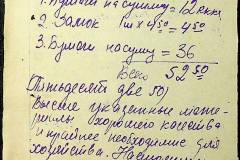 1. Бумаги на сумму = 12 р к к
2. Замок 1 шт 4 50 = 4 50
3. Бумаги на сумму = 36
Всего 52 50
Пятьдесят две 50)
Выше указанные мате-
риалы хорошего качества
и крайне необходимые для
хозяйства.